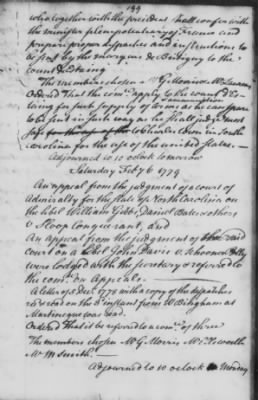 who together with the president shall confer with
the minister plenipotentiary of France and
prepare proper dispatches and instructions to
be sent by the marquis de Bretigny to the
count d'Estaing
The members chosen Mr G Morris
Ordered That the comee apply to the count d'Es-
taing for such supply of arms & ammunition as he can spare
to be sent in such way as he shall judge most
safe to Charles Town in South
Carolina for the use of the united States.—
Adjourned to 10 o Clock to morrow
Saturday Feby 6 1779
An appeal from the judgment of a court of
Admiralty for the State of North Carolina on
the libel William Gibb, Daniel Bates & others
v Sloop Conquerant, and
An Appeal from the judgment of the said
court on a libel John Davis v. Schooner
were lodged with the secretary & referred to
the comee on Appeals.
A letter of 5 Decr 1778 with a copy of the dispatches
received on the 3d instant from W Bingham at
Martinique was read.
Ordered That it be referred to a comee of three
The members chosen Mr G Morris Mr Elsworth
Mr M Smith.—
Adjourned to 10 o Clock on Monday